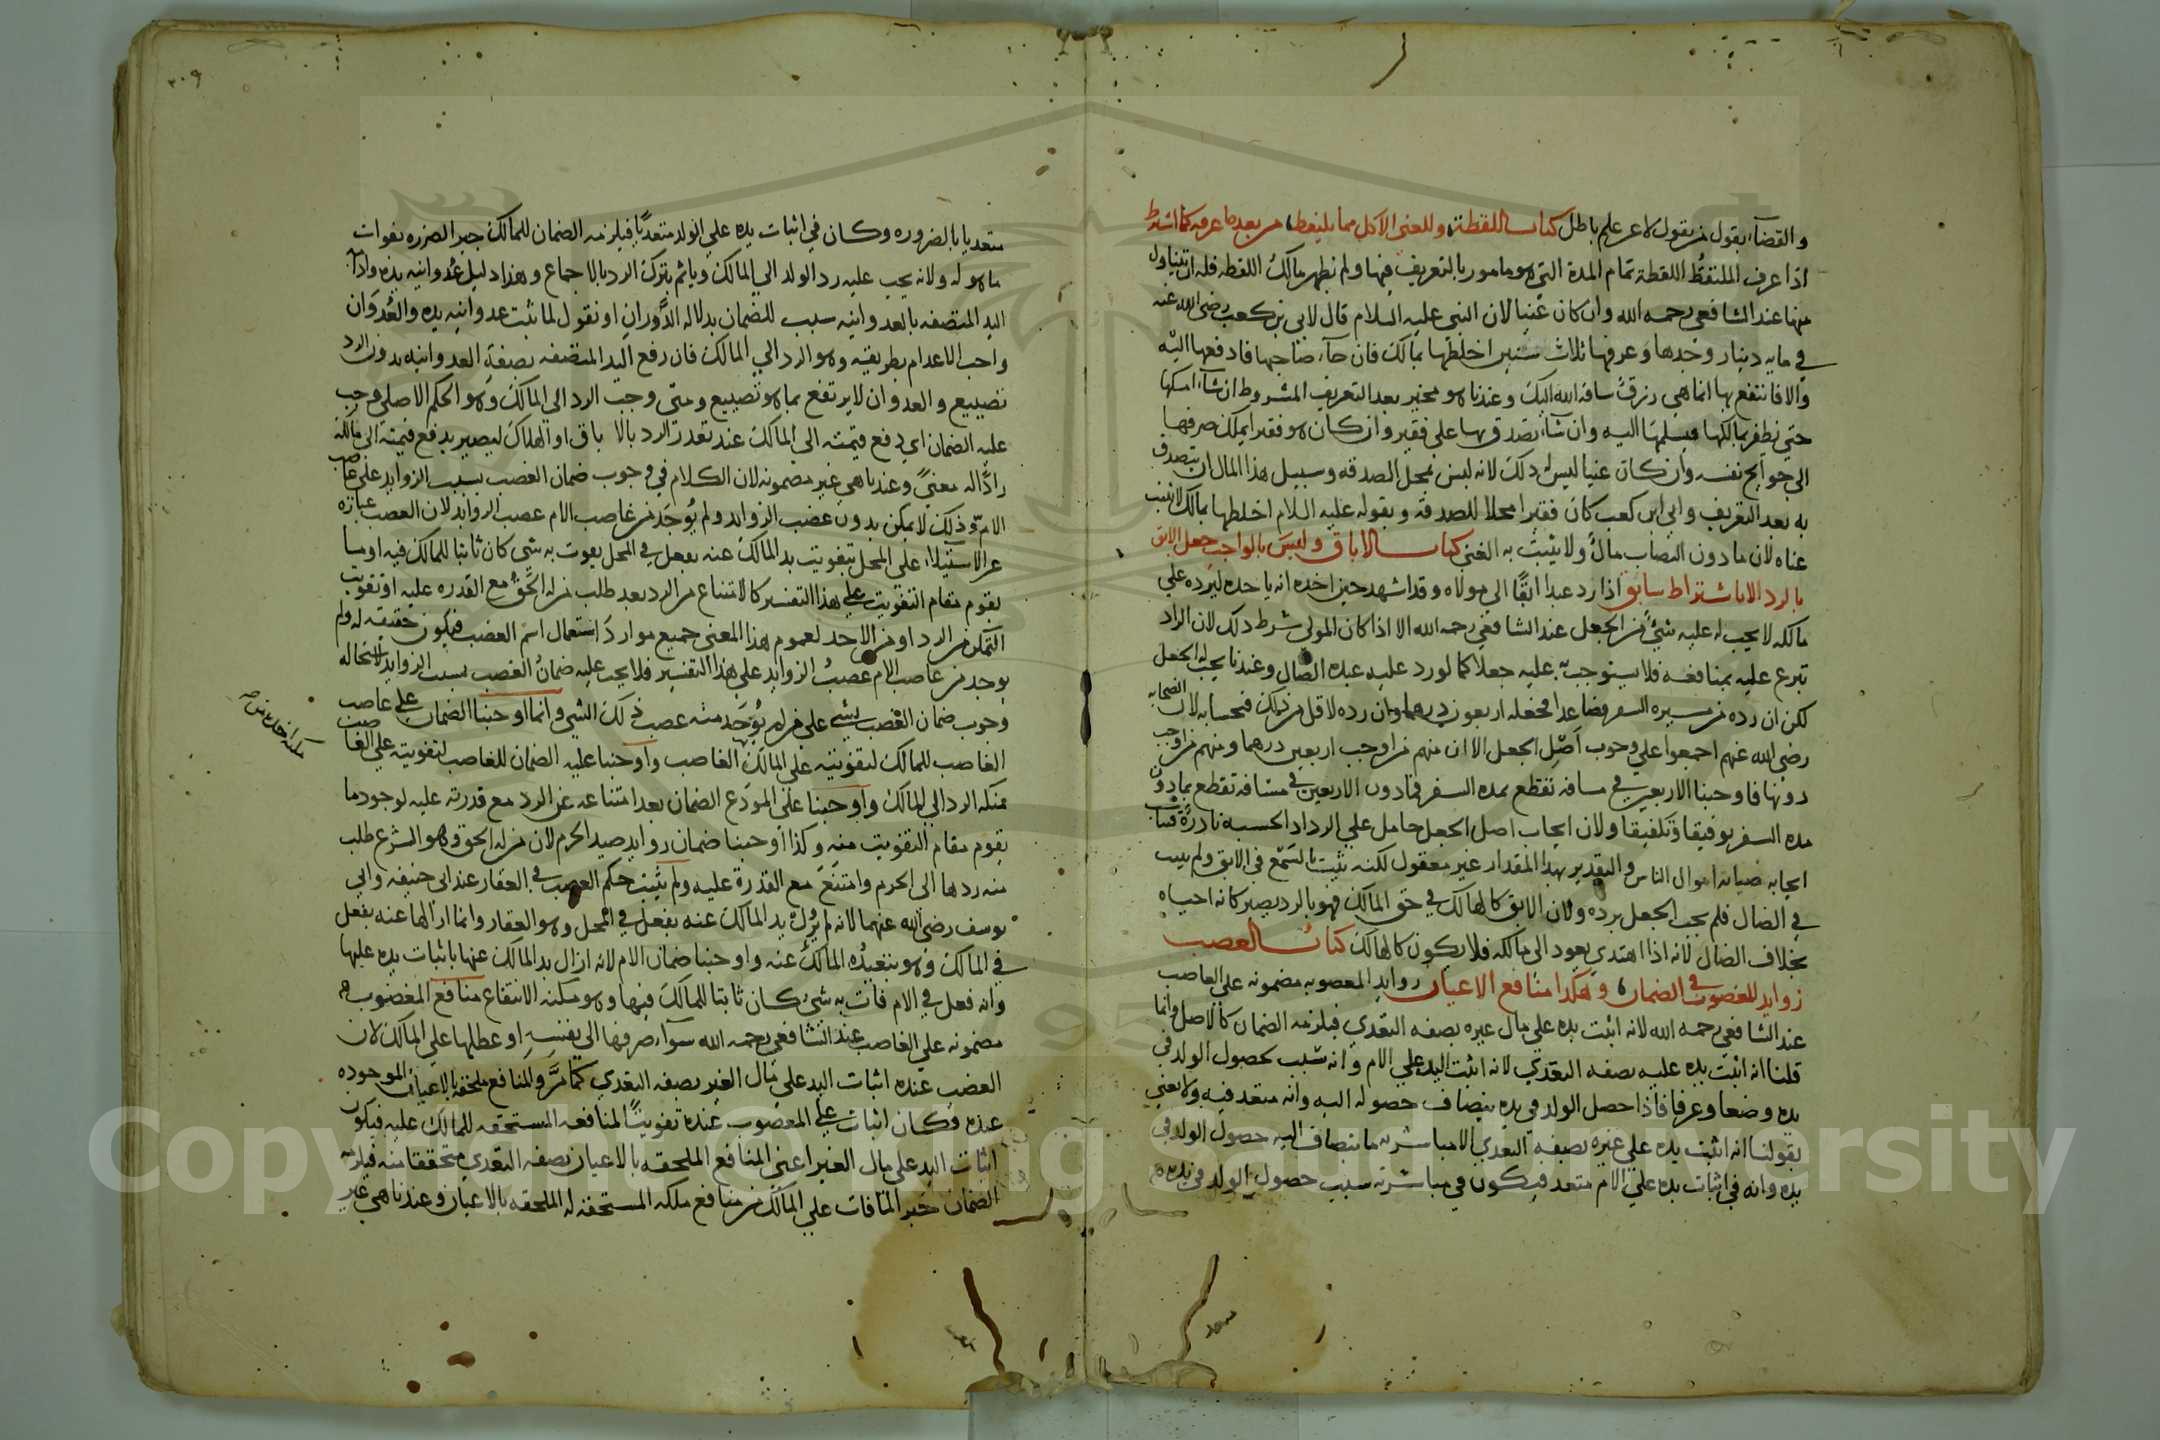 والقضاء بقول من يقول لا عن علم باطل كتاب اللقطة وللغني الاكل مما يلتقط من بعد ما عرفه كما اشترط
اذا عرف الملتقط اللقطة تمام المدة التي هو مامور بالتعريف فيها ولم يظهر مالك اللقطه فله ان يتناول
منها عند الشافعي رحمه الله وان كان غنيا لان النبي عليه السلام قال لابي بن كعب رضي الله عنه
في مايه دينار وجدها وعرفها ثلاث سنين اخلطها بمالك فان جاء صاحبها فادفعها اليه
والا فانتفع بها انما هي رزق ساقه الله اليك وعندنا هو مخير بعد التعريف المشروط ان شاء امسكها
حتي يظفر بمالكها فيسلمها اليه وان شاء تصدق بها علي فقير وان كان هو فقيرا يملك صرفها
الي حوايج نفسه وان كان غنيا ليس له ذلك لانه ليس بمحل الصدقه وسبيل هذا المال ان يتصدق
به بعد التعريف وابي ابن كعب كان فقيرا محلا للصدقة وبقوله عليه السلام اخلطها بمالك لا يثبت
غناه لان ما دون النصاب مال ولا يثبت به الغني كتاب الاباق وليس بالواجب جعل الابق
بالرد الا باشتراط سابق اذا رد عبدا ابقا الي مولاه وقد اشهد حين اخذه انه ياخذه ليرده علي
مالكه لا يجب له عليه شيء من الجعل عند الشافعي رحمه الله الا اذا كان المولي شرط ذلك لان الراد
تبرع عليه بمنافعه فلا يستوجب عليه جعلا كما لو رد عليه عبده الضال وعندنا يجب له الجعل
لكن ان رده من مسيره السفر فصاعدا فجعله اربعون درهما وان رده لاقل من ذلك فبحسابه لان الصحابه
رضي الله عنهم اجمعوا علي وجوب اصل الجعل الا ان منهم من اوجب اربعين درهما ومنهم من اوجب
دونها فاوجبنا الاربعين في مسافه تقطع بمده السفر فما دون الاربعين في مسافه تقطع بما دون
مده السفر توفيقا وتلفيقا ولان ايجاب اصل الجعل حامل علي الرد اذ الحسبة نادرة فتاب
ايجابه صيانه اموال الناس والتقدير بهذا المقدار غير معقول لكنه يثبت بالسمع في الابق ولم يثبت
في الضال فلم يجب الجعل برده ولان الابق كالهالك في حق المالك فهو بالرد يصير كانه احياه
بخلاف الضال لانه اذا اهتدي يعود الي مالكه فلا يكون كالهالك كتاب الغصب
زوايد المغصوب في الضمان وهكذا منافع الاعيان زوايد المغصوبه مضمونه علي الغاصب
عند الشافعي رحمه الله لانه اثبت يده علي مال غيره بصفه التعدي فيلزمه الضمان كالاصل وانما
قلنا انه اثبت يده عليه بصفه التعدي لانه اثبت اليد علي الام وانه سبب لحصول الولد في
يده وضعا وعرفا فاذا حصل الولد في يده يضاف حصوله اليه وانه متعد فيه ولا يعني
بقولنا انه اثبت يده علي غيره بصفه التعدي الا مباشرته ما يضاف اليه حصول الولد في
يده وانه في اثبات يده علي الام متعد فيكون في مباشرته سبب حصول الولد في يده
متعديا بالضروره وكان في اثبات يده علي الولد متعديا فيلزمه الضمان للمالك جبرا لضرره بفوات
ما هو له ولانه يجب عليه رد الولد الي المالك وياثم بترك الرد بالاجماع وهذا دليل عدوانيه يده واذا
اليد المتصفه بالعدوانيه سبب للضمان بدلاله الدوران او نقول لما ثبت عدوانيه يده والعدوان
واجب الاعدام بطريقه وهو الرد الي المالك فان رفع اليد المتصفه بصفة العدوانيه بدون الرد
تضييع والعدوان لا يرتفع بما هو تضييع ومتي وجب الرد الي المالك وهو الحكم الاصلي وجب
عليه الضمان اي دفع قيمته الي المالك عند تعذر الرد بالاباق او الهلاك ليصير بدفع قيمته الي مالكه
رادا له معني وعندنا هي غير مضمونه لان الكلام في وجوب ضمان الغصب بسبب الزوايد علي غاصب
الام وذلك لا يمكن بدون غصب الزوايد ولم يوجد من غاصب الام غصب الزوايد لان الغصب عبارة
عن الاستيلاء علي المحل بتفويت يد المالك عنه بفعل في المحل يفوت به شي كان ثابتا للمالك فيه او ما
يقوم مقام التفويت علي هذا التفسير كالامتناع من الرد بعد طلب من له الحق مع القدره عليه او تفويت
التمكن من الرد او من الاخذ لعموم هذا المعني جميع موارد استعمال اسم الغصب فيكون حقيقه له ولم
يوجد من غاصب الام غصب الزوايد علي هذا التفسير فلا يجب عليه ضمان الغصب بسبب الزوايد لاستحاله
وجوب ضمان الغصب بشي علي من لم يوجد منه غصب ذلك الشي وانما اوجبنا الضمان علي غاصب
الغاصب للمالك لتفويته علي المالك الغاصب واوجبنا عليه الضمان للغاصب لتفويته علي الغاصب
مكنه الرد الي المالك واوجبنا علي المودع الضمان بعد امتناعه عن الرد مع قدرته عليه لوجود ما
يقوم مقام التفويت منه وكذا اوجبنا ضمان زوايد صيد الحرم لان من له الحق وهو الشرع طلب
منه ردها الي الحرم وامتنع مع القدرة عليه ولم يثبت حكم الغصب في العقار عند ابي حنيفه وابي
يوسف رضي الله عنهما لانه لم يزل يد المالك عنه بفعل في المحل وهو العقار وانما ازالها عنه بفعل
في المالك وهو بتبعيده المالك عنه واوجبنا ضمان الام لانه ازال يد المالك عنها باثبات يده عليها
وانه فعل في الام فات به شي كان ثابتا للمالك فيها وهو مكنه الانتفاع منافع المغصوب
مضمونه علي الغاصب عند الشافعي رحمه الله سواء صرفها الي نفسه او عطلها علي المالك لان
الغصب عنده اثبات اليد علي مال الغير بصفه التعدي كما مر والمنافع ملحقه بالاعيان الموجوده
عنده فكان اثبات علي المغصوب عنده تفويتا لمنافعه المستحقه للمالك عليه فيكون
اثبات اليد علي مال الغير اعني المنافع الملحقه بالاعيان بصفه التعدي متحققا منه فيلزمه
الضمان جبرا لما فات علي المالك من منافع ملكه المستحقه له الملحقه بالاعيان وعندنا هي غير
٢٠٩
Copyright © King Saud University